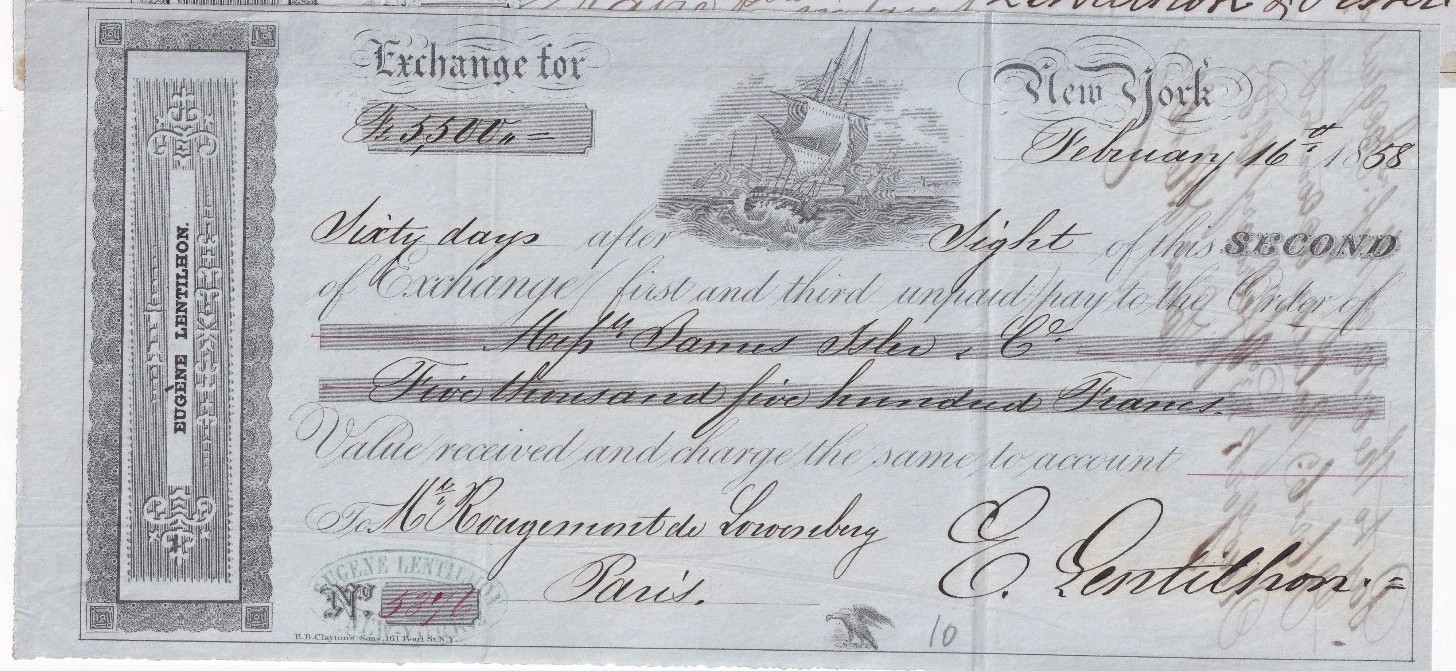 Exchange for
New York
Fr 5,500 „ =
February 16th 1858
Sixty days after Sight of this SECOND
of Exchange (first and third unpaid) pay to the Order of
Messrs James Isler & Co.
Five thousand five hundred Francs.
Value received and charge the same to account
To Mr. Rougemont de Lowenberg
E. Lentilhon. =
Paris.
EUGENE LENTILHON
NEW YORK
No.
10
E.B. Clayton's Sons, 161 Pearl St. N.Y.
EUGÈNE LENTILHON.